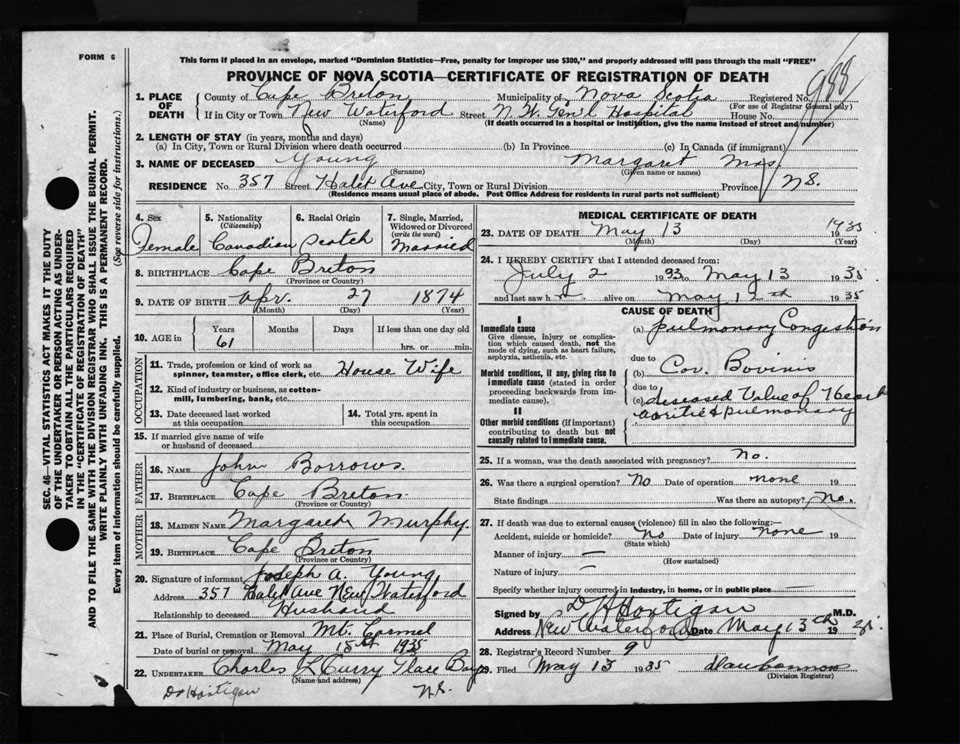 FORM 6
This form if placed in an envelope, marked "Dominion Statistics—Free, penalty for improper use $300," and properly addressed will pass through the mail "FREE"
PROVINCE OF NOVA SCOTIA—CERTIFICATE OF REGISTRATION OF DEATH
988
1. PLACE OF DEATH County of Cape Breton Municipality of Nova Scotia Registered No. (For use of Registrar General only)
If in City or Town New Waterford (Name) Street N. W. Gen'l Hospital House No.
(If death occurred in a hospital or institution, give the name instead of street and number)
2. LENGTH OF STAY (in years, months and days)
(a) In City, Town or Rural Division where death occurred (b) In Province (c) In Canada (if immigrant)
3. NAME OF DECEASED Young (Surname) Margaret Mrs. (Given name or names)
RESIDENCE No. 357 Street Ave City, Town or Rural Division Province N.S.
(Residence means usual place of abode. Post Office Address for residents in rural parts not sufficient)
4. Sex Female
5. Nationality (Citizenship) Canadian
6. Racial Origin Scotch
7. Single, Married, Widowed or Divorced (write the word) Married
8. BIRTHPLACE Cape Breton (Province or Country)
9. DATE OF BIRTH Apr. 27 1874
(Month) (Day) (Year)
10. AGE in Years 61 Months Days If less than one day old hrs. or min.
OCCUPATION
11. Trade, profession or kind of work as spinner, teamster, office clerk, etc. House Wife
12. Kind of industry or business, as cotton-mill, lumbering, bank, etc.
13. Date deceased last worked at this occupation
14. Total yrs. spent in this occupation
15. If married give name of wife or husband of deceased
FATHER
16. NAME John Borrows.
17. BIRTHPLACE Cape Breton. (Province or Country)
MOTHER
18. MAIDEN NAME Margaret Murphy.
19. BIRTHPLACE Cape Breton (Province or Country)
20. Signature of informant Joseph A. Young
Address 357 Ave New Waterford
Relationship to deceased Husband
21. Place of Burial, Cremation or Removal Mt. Carmel
Date of burial or removal May 15th 1935
22. UNDERTAKER Charles Curry Glace Bay
N.S.
Dr Hartigan
MEDICAL CERTIFICATE OF DEATH
23. DATE OF DEATH May 13 1935
(Month) (Day) (Year)
24. I HEREBY CERTIFY that I attended deceased from:
July 2 193 to May 13 1935
and last saw h alive on May 12th 1935
CAUSE OF DEATH
I
Immediate cause
Give disease, injury or complication which caused death, not the mode of dying, such as heart failure, asphyxia, asthenia, etc.
(a) pulmonary Congestion
due to
Morbid conditions, if any, giving rise to immediate cause (stated in order proceeding backwards from immediate cause).
(b) Cor. Bovinis
due to
(c) diseased Value of Heart
aortic & pulmonary
II
Other morbid conditions (if important) contributing to death but not causally related to immediate cause.
25. If a woman, was the death associated with pregnancy? No.
26. Was there a surgical operation? No Date of operation none 19
State findings Was there an autopsy? No.
27. If death was due to external causes (violence) fill in also the following:—
Accident, suicide or homicide? No (State which) Date of injury none 19
Manner of injury — (How sustained)
Nature of injury —
Specify whether injury occurred in industry, in home, or in public place
Signed by D H Hartigan M.D.
Address New Waterford Date May 13th 19
28. Registrar's Record Number 9
29. Filed May 13 1935 (Division Registrar)
SEC. 46—VITAL STATISTICS ACT MAKES IT THE DUTY
OF THE UNDERTAKER OR PERSON ACTING AS UNDER-
TAKER TO OBTAIN ALL THE PARTICULARS REQUIRED
IN THE "CERTIFICATE OF REGISTRATION OF DEATH"
AND TO FILE THE SAME WITH THE DIVISION REGISTRAR WHO SHALL ISSUE THE BURIAL PERMIT.
WRITE PLAINLY WITH UNFADING INK. THIS IS A PERMANENT RECORD.
Every item of information should be carefully supplied. (See reverse side for instructions.)